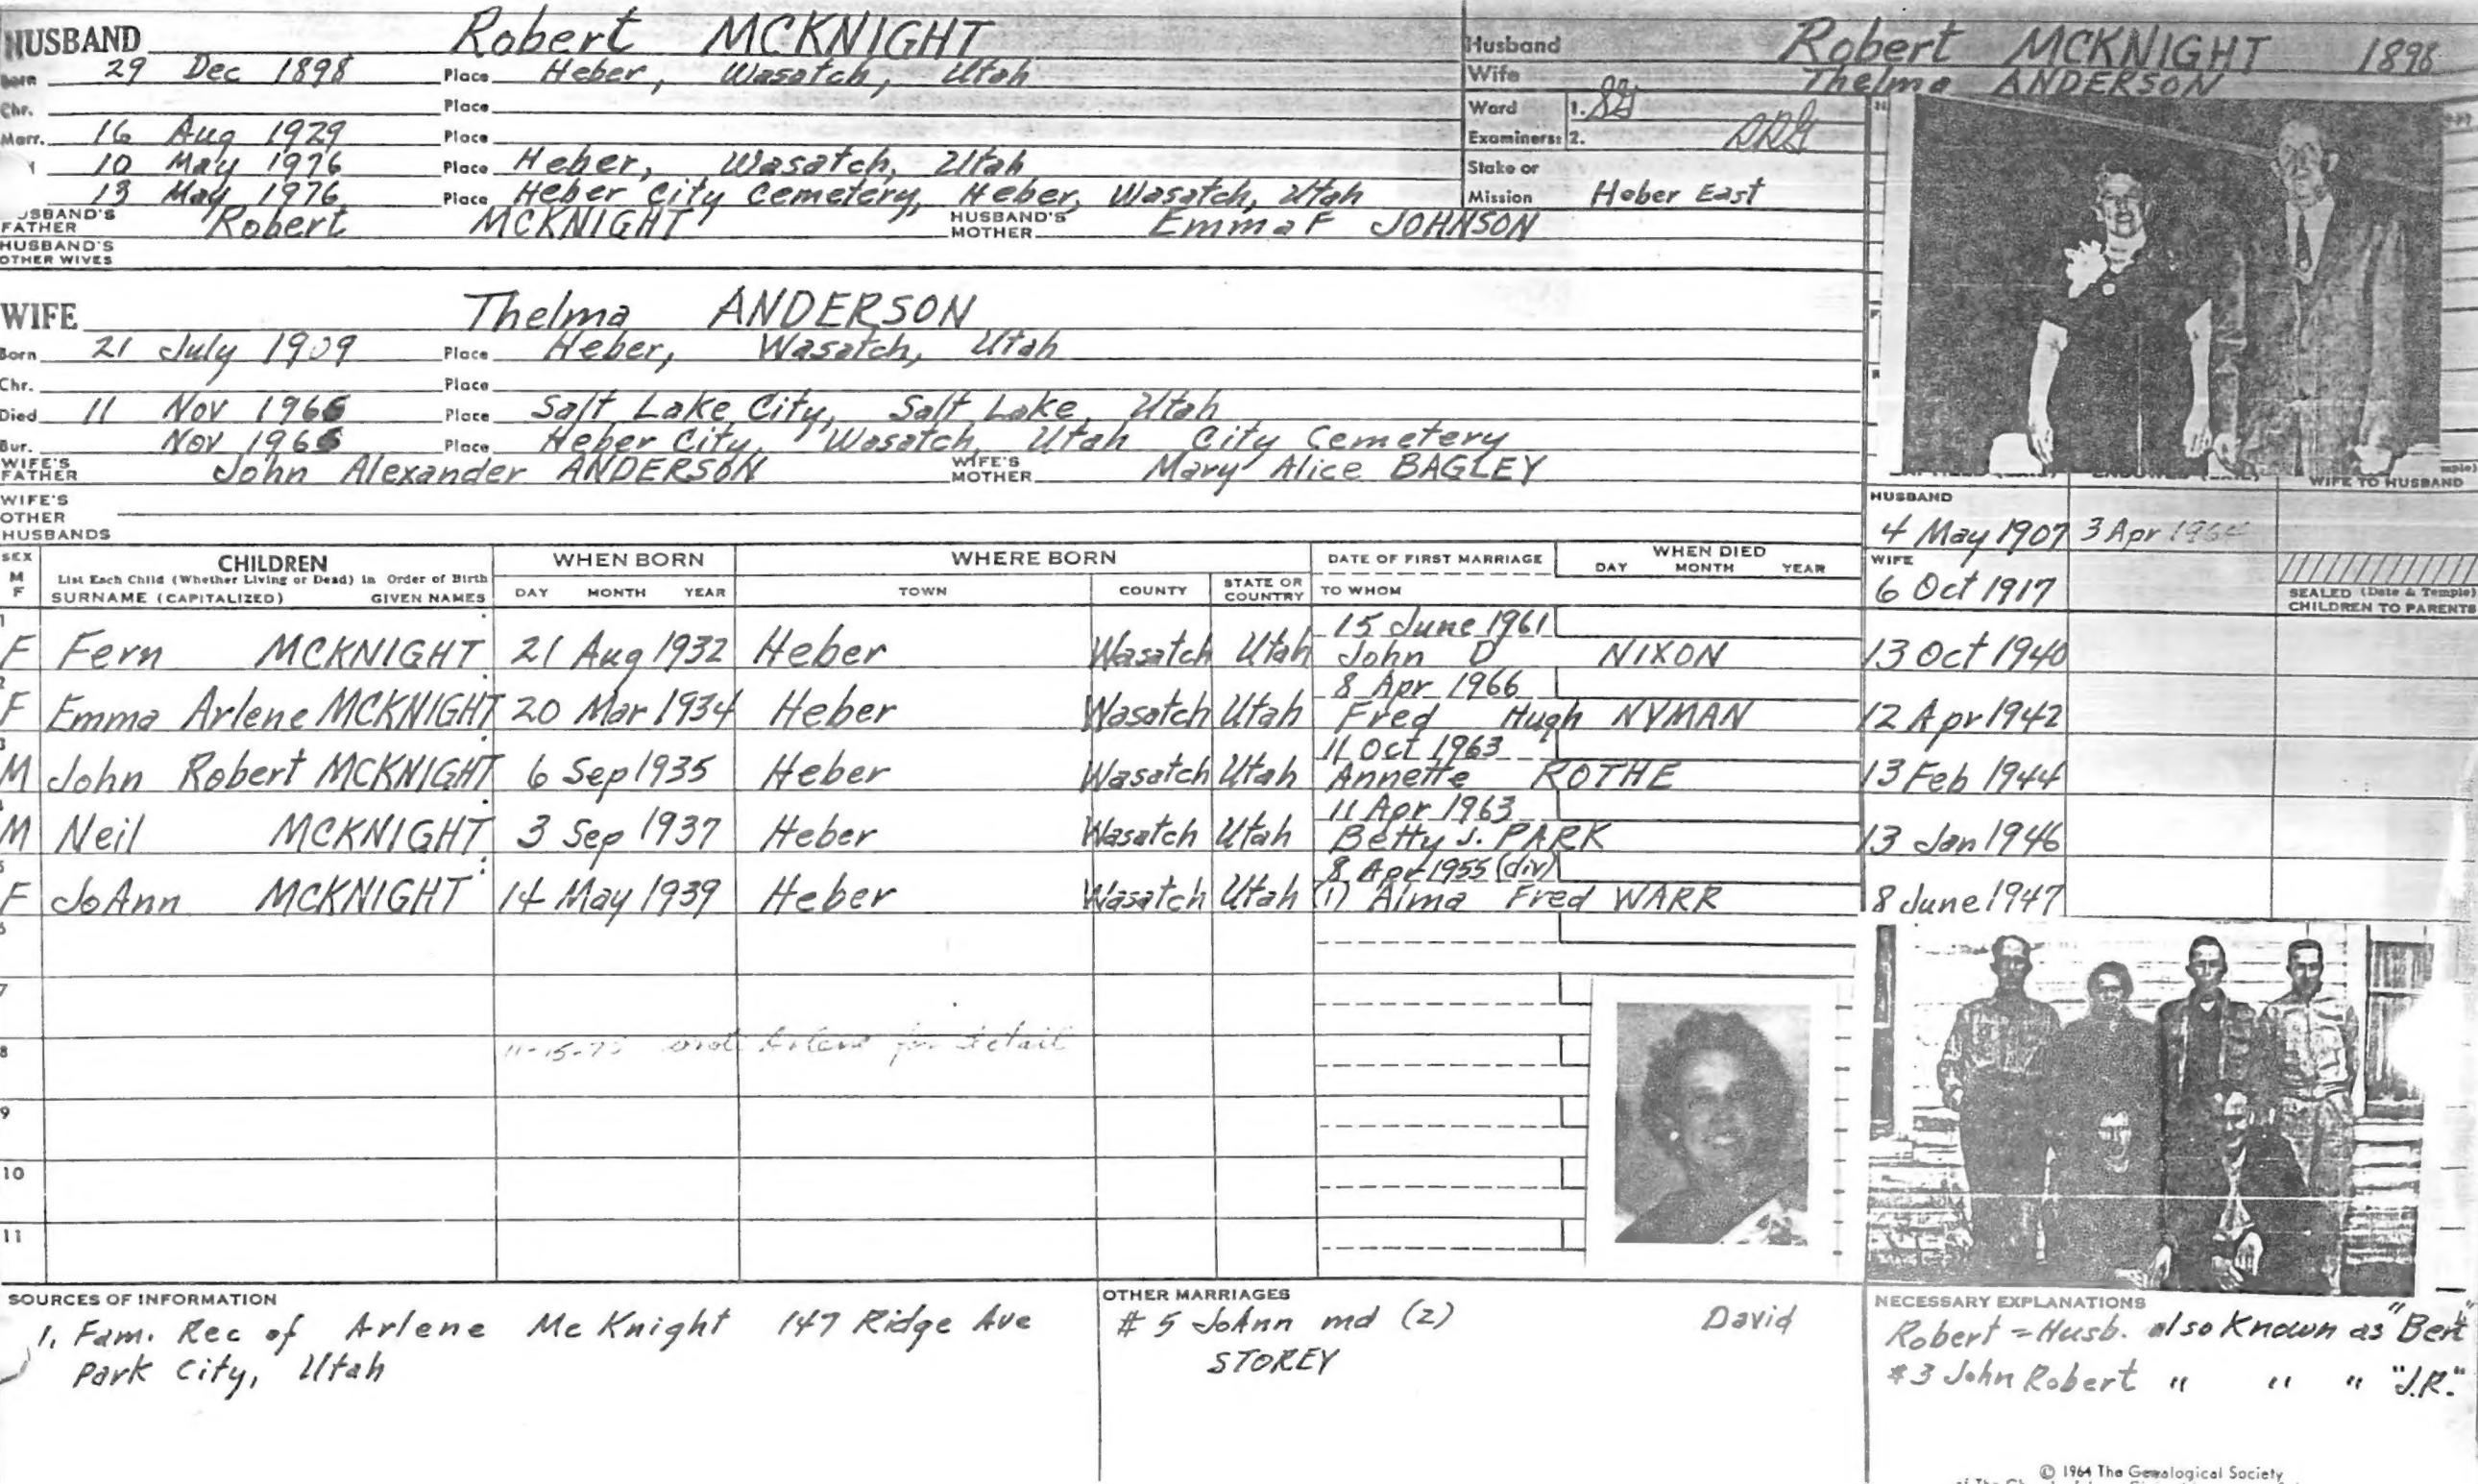 HUSBAND Robert MCKNIGHT
Born 29 Dec 1898 Place Heber, Wasatch, Utah
Chr. Place
Marr. 16 Aug 1929 Place
10 May 1976 Place Heber, Wasatch, Utah
13 May 1976 Place Heber City Cemetery, Heber, Wasatch, Utah
USBAND'S FATHER Robert MCKNIGHT HUSBAND'S MOTHER Emma F JOHNSON
HUSBAND'S OTHER WIVES
Husband Robert MCKNIGHT 1898
Wife Thelma ANDERSON
Ward 1.
Examiners: 2.
Stake or
Mission Heber East
WIFE Thelma ANDERSON
Born 21 July 1909 Place Heber, Wasatch, Utah
Chr. Place
Died 11 Nov 1966 Place Salt Lake City, Salt Lake, Utah
Bur. Nov 1966 Place Heber City, Wasatch, Utah City Cemetery
WIFE'S FATHER John Alexander ANDERSON WIFE'S MOTHER Mary Alice BAGLEY
WIFE'S
OTHER
HUSBANDS
WIFE TO HUSBAND
HUSBAND
4 May 1907 3 Apr
WIFE
6 Oct 1917
SEALED (Date & Temple)
CHILDREN TO PARENTS
SEX
M
F
CHILDREN
List Each Child (Whether Living or Dead) in Order of Birth
SURNAME (CAPITALIZED) GIVEN NAMES
WHEN BORN
DAY MONTH YEAR
WHERE BORN
TOWN COUNTY STATE OR COUNTRY
DATE OF FIRST MARRIAGE
TO WHOM
WHEN DIED
DAY MONTH YEAR
1 15 June 1961
F Fern MCKNIGHT 21 Aug 1932 Heber Wasatch Utah John D NIXON 13 Oct 1940
2 8 Apr 1966
F Emma Arlene MCKNIGHT 20 Mar 1934 Heber Wasatch Utah Fred Hugh NYMAN 12 Apr 1942
3 11 Oct 1963
M John Robert MCKNIGHT 6 Sep 1935 Heber Wasatch Utah Annette ROTHE 13 Feb 1944
4 11 Apr 1963
M Neil MCKNIGHT 3 Sep 1937 Heber Wasatch Utah Betty J. PARK 13 Jan 1946
5 8 Apr 1955 (div)
F JoAnn MCKNIGHT 14 May 1939 Heber Wasatch Utah (1) Alma Fred WARR 8 June 1947
6
7
8 Arlene for detail
9
10
11
SOURCES OF INFORMATION
1. Fam. Rec of Arlene McKnight 147 Ridge Ave
Park City, Utah
OTHER MARRIAGES
# 5 JoAnn md (2) David
STOREY
NECESSARY EXPLANATIONS
Robert = Husb. also Known as "Bert"
#3 John Robert " " " "J.R."
© 1964 The Genealogical Society